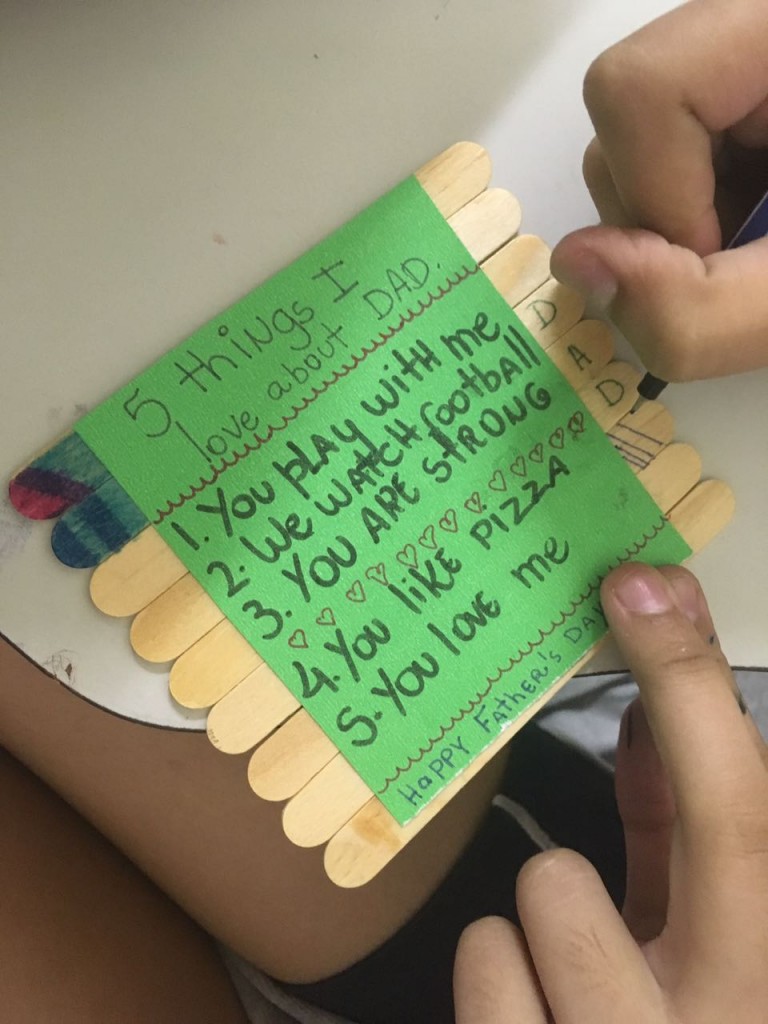 5 thiNgs I
love about DAD.
1. You plAy with me
2. We wATCH football
3. YOU ARE STRONG
4. You likE PIZZA
5. You love me
HAPPY FatHER's DAY
D
A
D